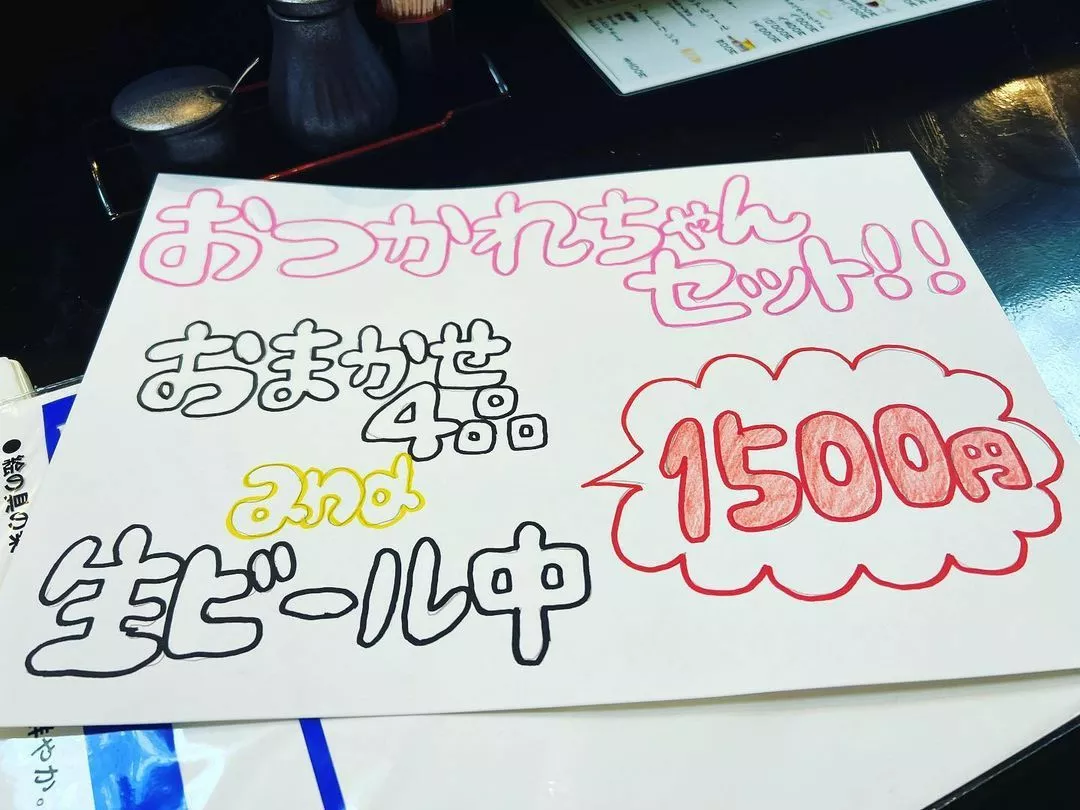 おつかれちゃん
セット!!
おまかせ
4品
and
生ビール中
1500円
●絵の具の
やか。